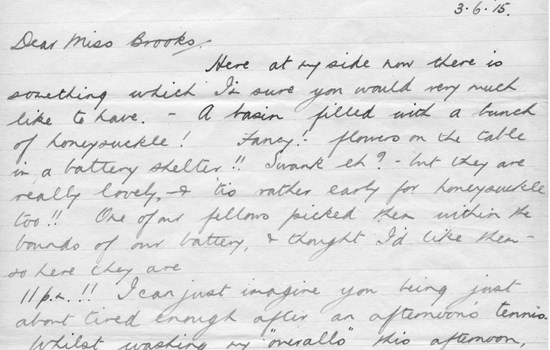 3.6.15.
Dear Miss Brooks,
Here at my side now there is
something which I'm sure you would very much
like to have. - A basin filled with a bunch
of honeysuckle! Fancy! flowers on the table
in a battery shelter!! Swank eh? - but they are
really lovely, & tis rather early for honeysuckle
too!! One of our fellows picked them within the
bounds of our battery, & thought I'd like them -
so here they are
11 p.m.!! I can just imagine you being just
about tired enough after an afternoon's tennis.
Whilst washing my "overalls" this afternoon,